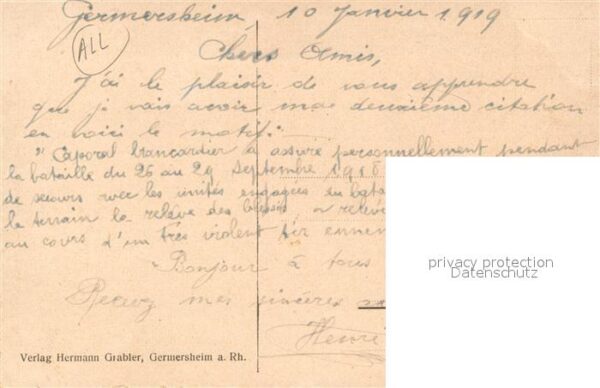 Germersheim, 10 Janvier 1919
ALL
Chers Amis,
J'ai le plaisir de vous apprendre
que je vais avoir ma deuxième citation
en voici le motif:
" Caporal brancardier a assuré personnellement pendant
la bataille du 26 au 29 septembre 1918
de secours avec les unités engagées en
le terrain la relève des blessés, a
au cours d'un très violent tir
Bonjour à tous
Recevez mes sincères
Henri
Verlag Hermann Grabler, Germersheim a. Rh.
privacy protection
Datenschutz